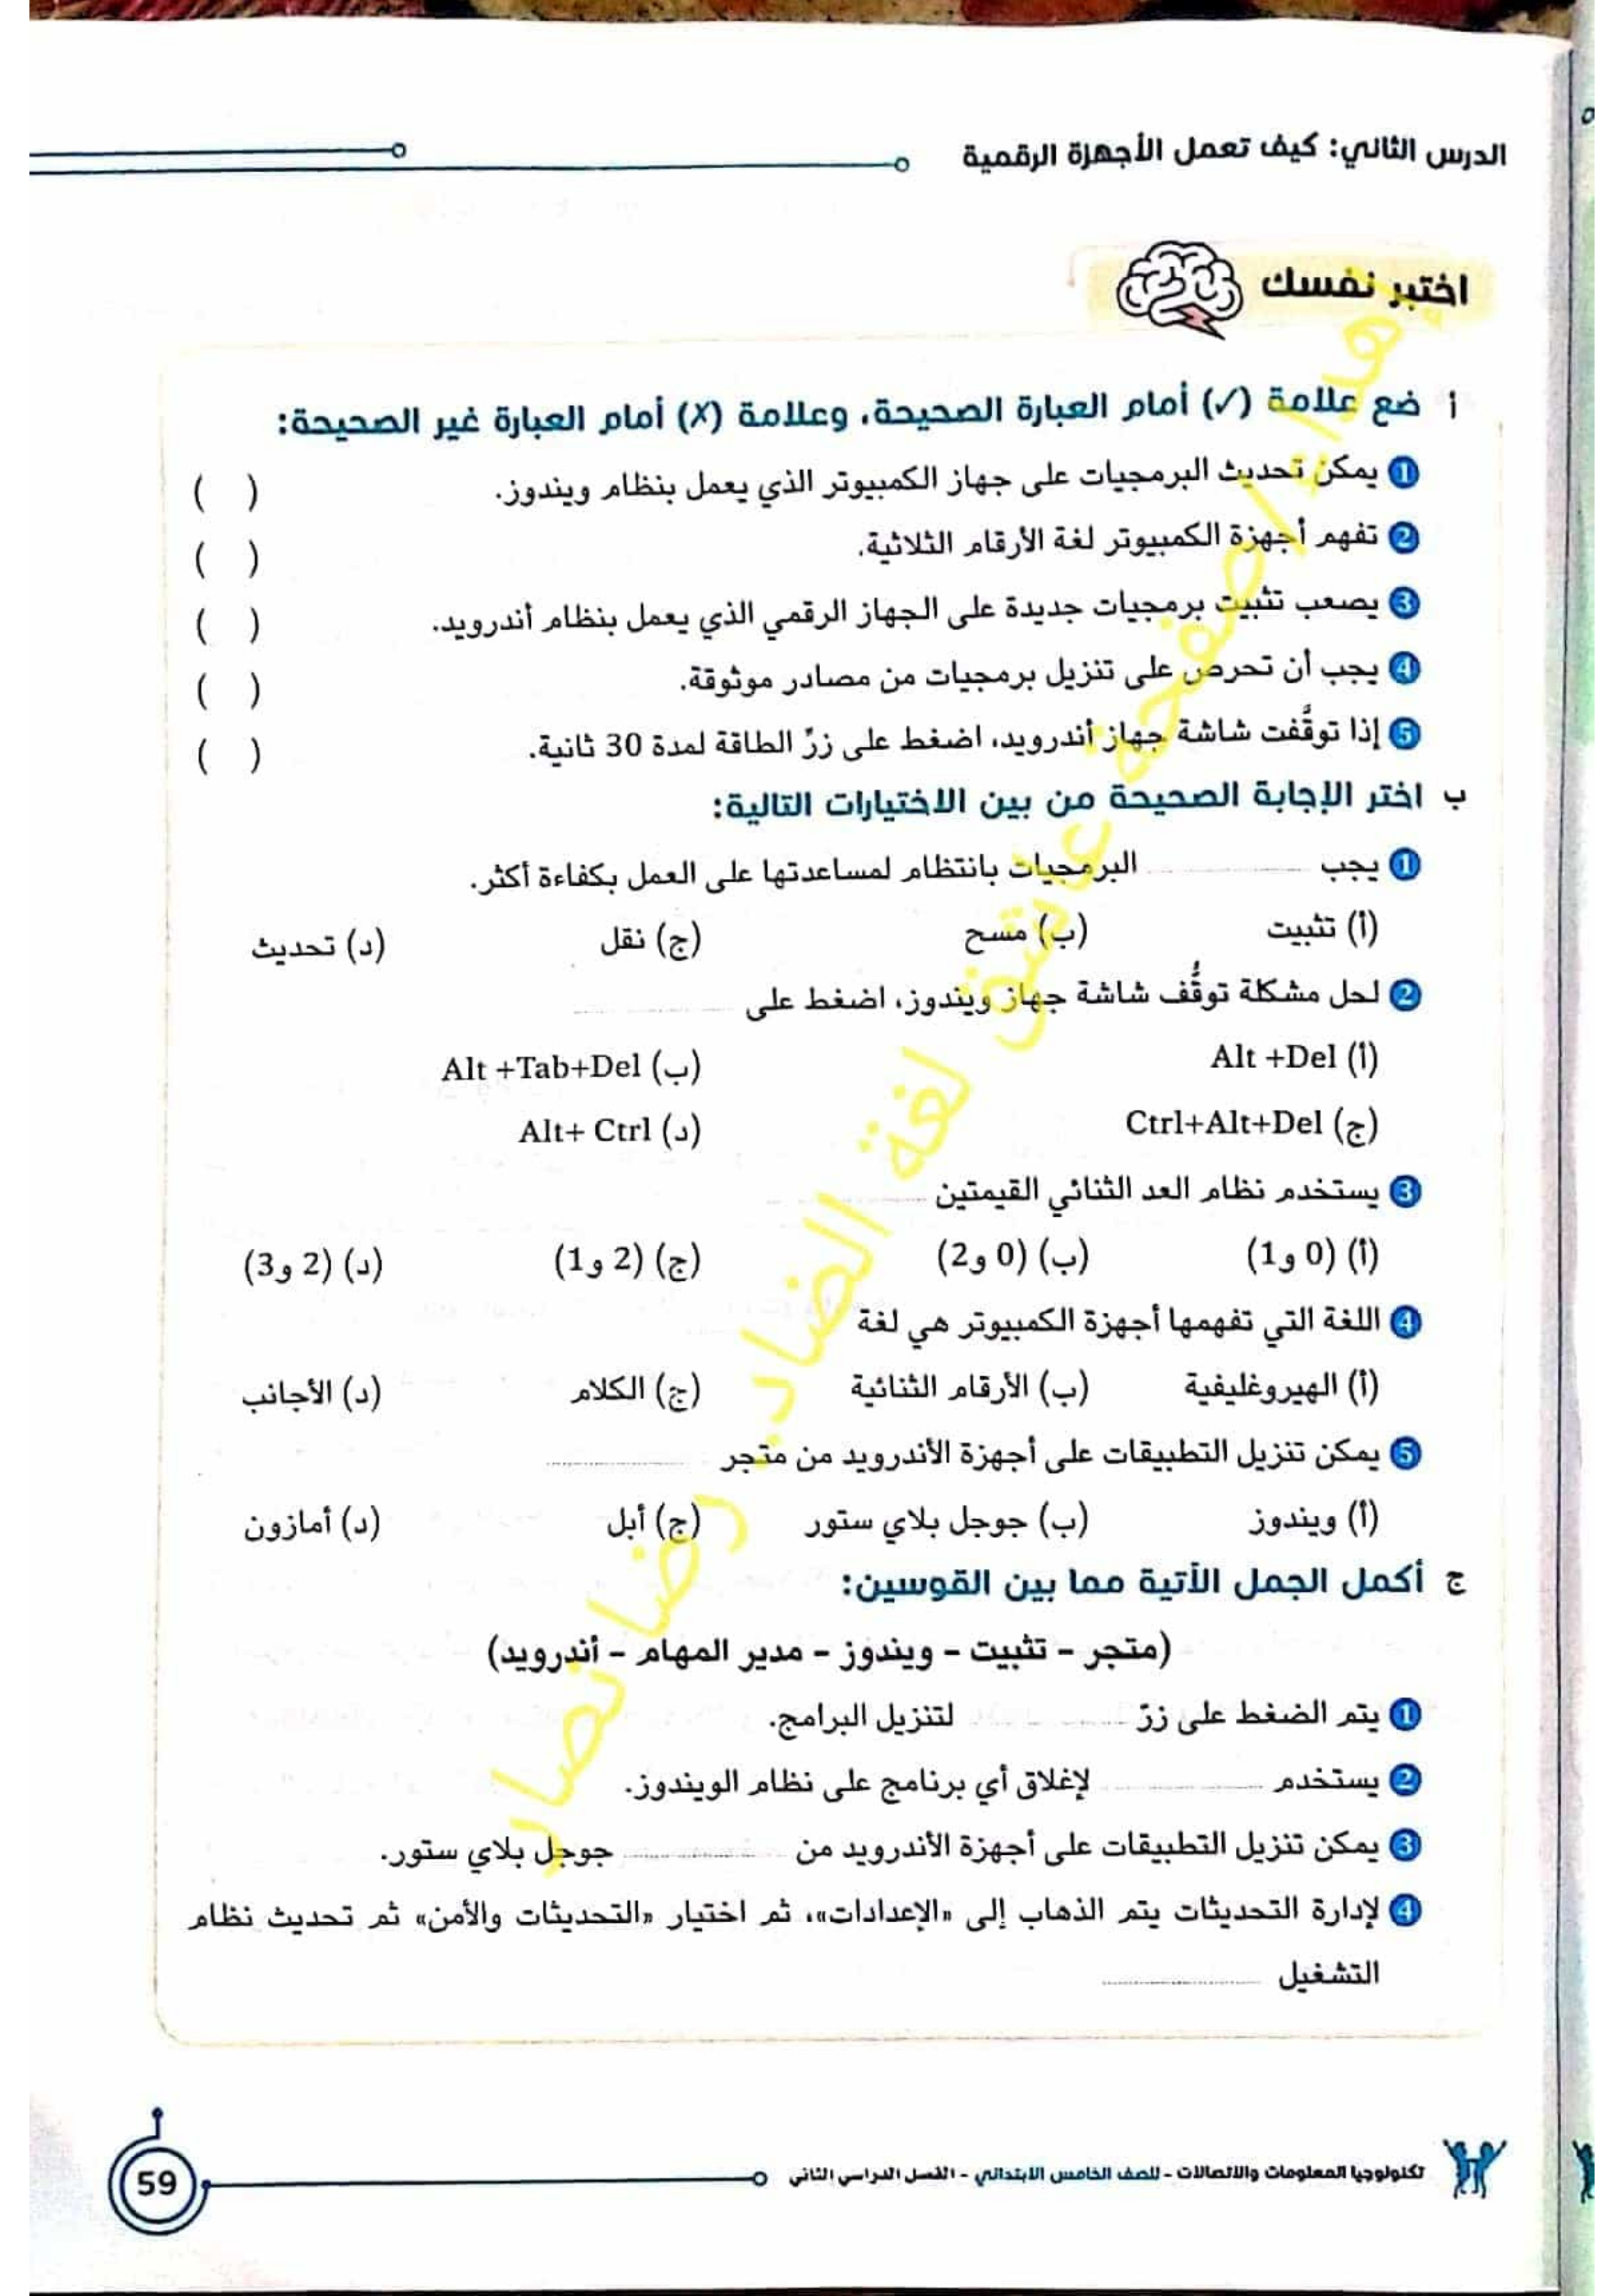 الدرس الثاني: كيف تعمل الأجهزة الرقمية
اختبر نفسك
أ ضع علامة (✓) أمام العبارة الصحيحة، وعلامة (✗) أمام العبارة غير الصحيحة:
1 يمكن تحديث البرمجيات على جهاز الكمبيوتر الذي يعمل بنظام ويندوز. ( )
2 تفهم أجهزة الكمبيوتر لغة الأرقام الثلاثية. ( )
3 يصعب تثبيت برمجيات جديدة على الجهاز الرقمي الذي يعمل بنظام أندرويد. ( )
4 يجب أن تحرص على تنزيل برمجيات من مصادر موثوقة. ( )
5 إذا توقَّفت شاشة جهاز أندرويد، اضغط على زرِّ الطاقة لمدة 30 ثانية. ( )
ب اختر الإجابة الصحيحة من بين الاختيارات التالية:
1 يجب ............ البرمجيات بانتظام لمساعدتها على العمل بكفاءة أكثر.
(أ) تثبيت (ب) مسح (ج) نقل (د) تحديث
2 لحل مشكلة توقُّف شاشة جهاز ويندوز، اضغط على ............
(أ) Alt +Del (ب) Alt +Tab+Del
(ج) Ctrl+Alt+Del (د) Alt+ Ctrl
3 يستخدم نظام العد الثنائي القيمتين ............
(أ) (0 و1) (ب) (0 و2) (ج) (2 و1) (د) (2 و3)
4 اللغة التي تفهمها أجهزة الكمبيوتر هي لغة
(أ) الهيروغليفية (ب) الأرقام الثنائية (ج) الكلام (د) الأجانب
5 يمكن تنزيل التطبيقات على أجهزة الأندرويد من متجر ............
(أ) ويندوز (ب) جوجل بلاي ستور (ج) أبل (د) أمازون
ج أكمل الجمل الآتية مما بين القوسين:
(متجر - تثبيت - ويندوز - مدير المهام - أندرويد)
1 يتم الضغط على زرّ ............ لتنزيل البرامج.
2 يستخدم ............ لإغلاق أي برنامج على نظام الويندوز.
3 يمكن تنزيل التطبيقات على أجهزة الأندرويد من ............ جوجل بلاي ستور.
4 لإدارة التحديثات يتم الذهاب إلى «الإعدادات»، ثم اختيار «التحديثات والأمن» ثم تحديث نظام
التشغيل ............
إهداء لصفحة عاشق لغة الضاد. رضا نصار
تكنولوجيا المعلومات والاتصالات - للصف الخامس الابتدائي - الفصل الدراسي الثاني
59